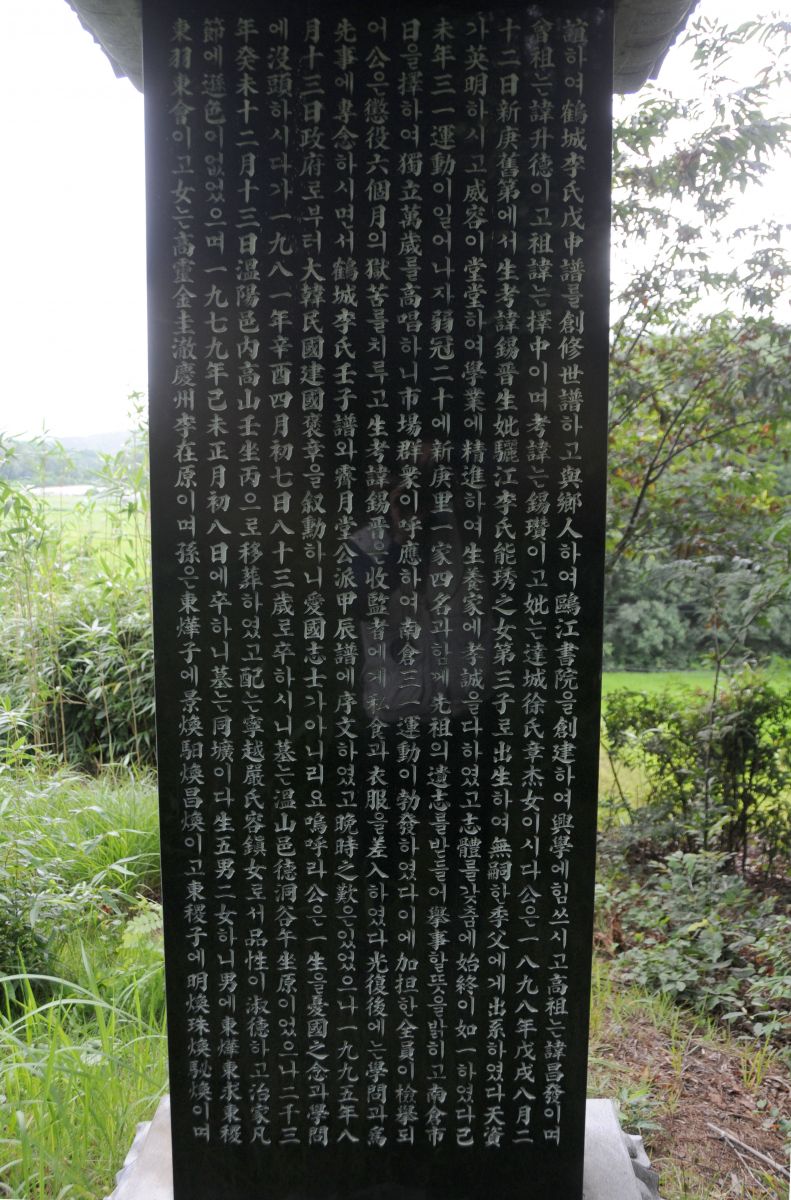 하여 鶴城李氏戊申譜를 創修世譜하고 與鄕人하여 鷗江書院을 創建하여 興學에 힘쓰시고 高祖는 諱昌發이며
曾祖는 諱升德이고 祖諱는 擇中이며 考諱는 錫瓚이고 妣는 達城徐氏章杰女이시다 公은 一八九八年戊戌八月二
十二日新庚舊第에서 生考諱錫晋生妣驪江李氏能琇之女第三子로 出生하여 無嗣한 季父에게 出系하였다 天資
가 英明하시고 威容이 堂堂하여 學業에 精進하여 生養家에 孝誠을 다하였고 志體를 갖춤에 始終이 如一하였다 己
未年三一運動이 일어나자 弱冠二十에 新庚里一家四名과 함께 先祖의 遺志를 받들어 擧事할 뜻을 밝히고 南倉市
日을 擇하여 獨立萬歲를 高唱하니 市場群衆이 呼應하여 南倉三一運動이 勃發하였다 이에 加担한 全員이 檢擧되
어 公은 懲役六個月의 獄苦를 치루고 生考諱錫晋은 收監者에게 私食과 衣服을 差入하였다 光復後에는 學問과 爲
先事에 專念하시면서 鶴城李氏壬子譜와 霽月堂公派甲辰譜에 序文하였고 晩時之歎은 있었으나 一九九五年八
月十三日政府로부터 大韓民國建國褒章을 叙勳하니 愛國志士가 아니리요 嗚呼라 公은 一生을 憂國之念과 學問
에 沒頭하시다가 一九八一年辛酉四月初七日八十三歲로 卒하시니 墓는 溫山邑德洞谷午坐原이었으나 二千三
年癸未十二月十三日溫陽邑內高山壬坐丙으로 移葬하였고 配는 寧越嚴氏容鎭女로서 品性이 淑德하고 治家凡
節에 遜色이 없었으며 一九七九年己未正月初八日에 卒하니 墓는 同壙이다 生五男二女하니 男에 東燁東求東稷
東羽東會이고 女는 高靈金圭澈慶州李在原이며 孫은 東燁子에 景煥馹煥昌煥이고 東稷子에 明煥珠煥煥이며